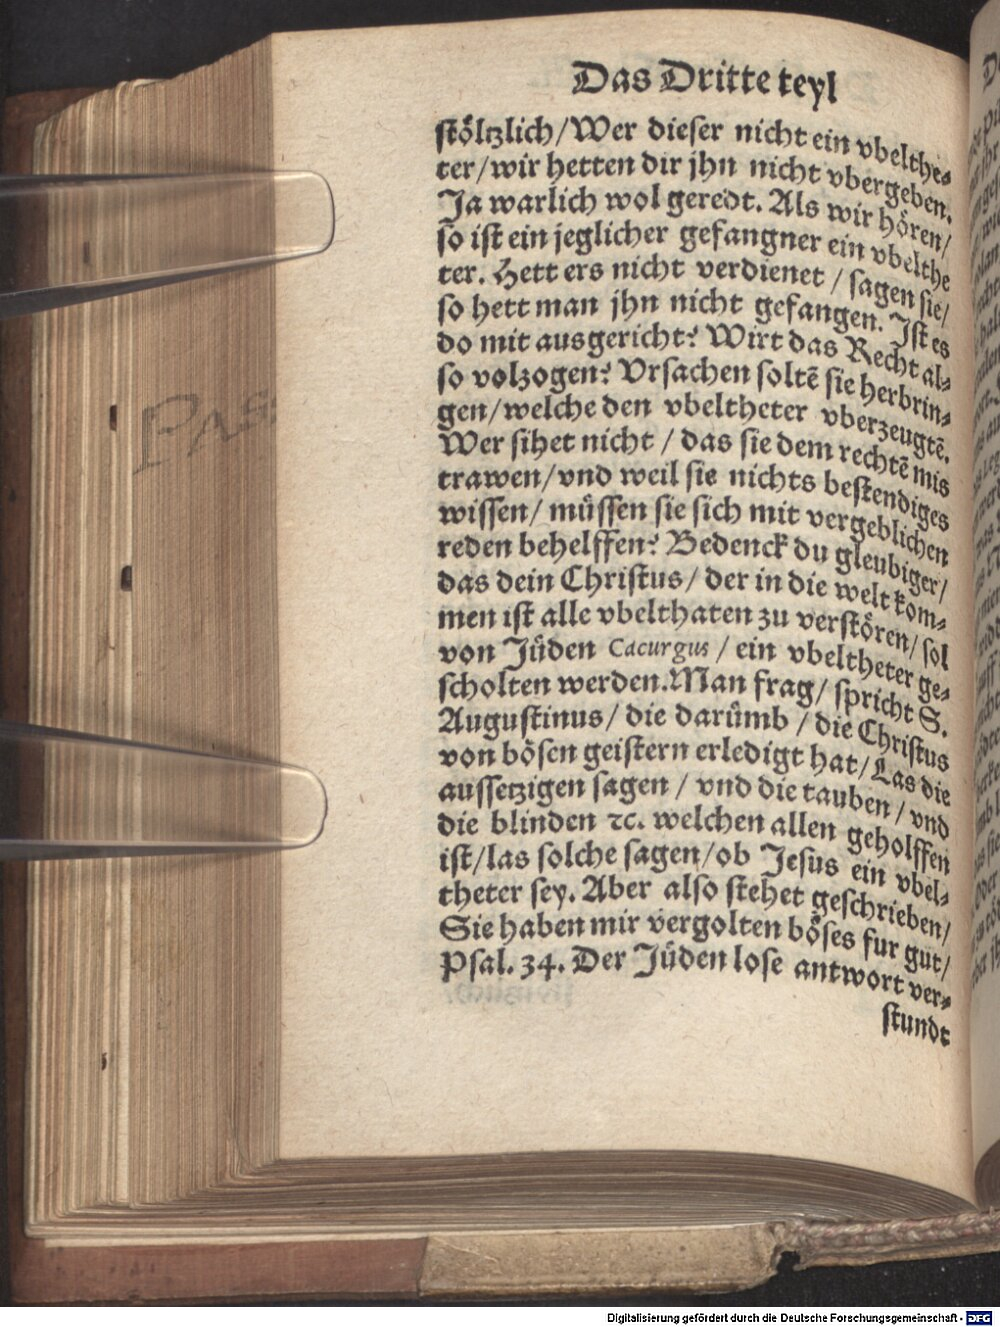 Das Dritte teyl
stöltzlich/Wer dieser nicht ein vbelthe⸗
ter/wir hetten dir jhn nicht vbergeben.
Ja warlich wol geredt. Als wir hören/
so ist ein jeglicher gefangner ein vbelthe
ter. Hett ers nicht verdienet / sagen sie/
so hett man jhn nicht gefangen. Jst es
do mit ausgericht? Wirt das Recht al⸗
so volzogen? Vrsachen soltē sie herbrin⸗
gen/welche den vbeltheter vberzeugtē.
Wer sihet nicht / das sie dem rechtē mis
trawen/vnd weil sie nichts bestendiges
wissen/ müssen sie sich mit vergeblichen
reden behelffen? Bedenck du gleubiger/
das dein Christus/ der in die welt kom⸗
men ist alle vbelthaten zu verstören/ sol
von Jüden Cacurgus / ein vbeltheter ge⸗
scholten werden. Man frag/ spricht S.
Augustinus/ die darümb / die Christus
von bösen geistern erledigt hat/ Las die
aussetzigen sagen / vnd die tauben / vnd
die blinden ꝛc. welchen allen geholffen
ist/las solche sagen/ob Jesus ein vbel⸗
theter sey. Aber also stehet geschrieben/
Sie haben mir vergolten böses fur gut/
Psal. 34. Der Jüden lose antwort ver⸗
stundt
PASS
Digitalisierung gefördert durch die Deutsche Forschungsgemeinschaft - DFG